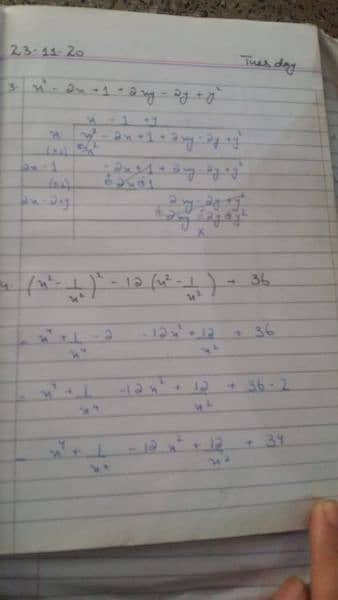 23-11-20
Tuesday
3. x² - 2x + 1 + 2xy - 2y + y²
x - 1 + y
x x² - 2x + 1 + 2xy - 2y + y²
x²
2x - 1 - 2x + 1 + 2xy - 2y + y²
2x 1
2x - 2 + y 2xy - 2y + y²
2xy 2y y²
x
4. (x² - 1/x²)² - 12 (x² - 1/x²) + 36
= x⁴ + 1/x⁴ - 2 - 12x² + 12/x² + 36
= x⁴ + 1/x⁴ - 12x² + 12/x² + 36 - 2
= x⁴ + 1/x⁴ - 12x² + 12/x² + 34